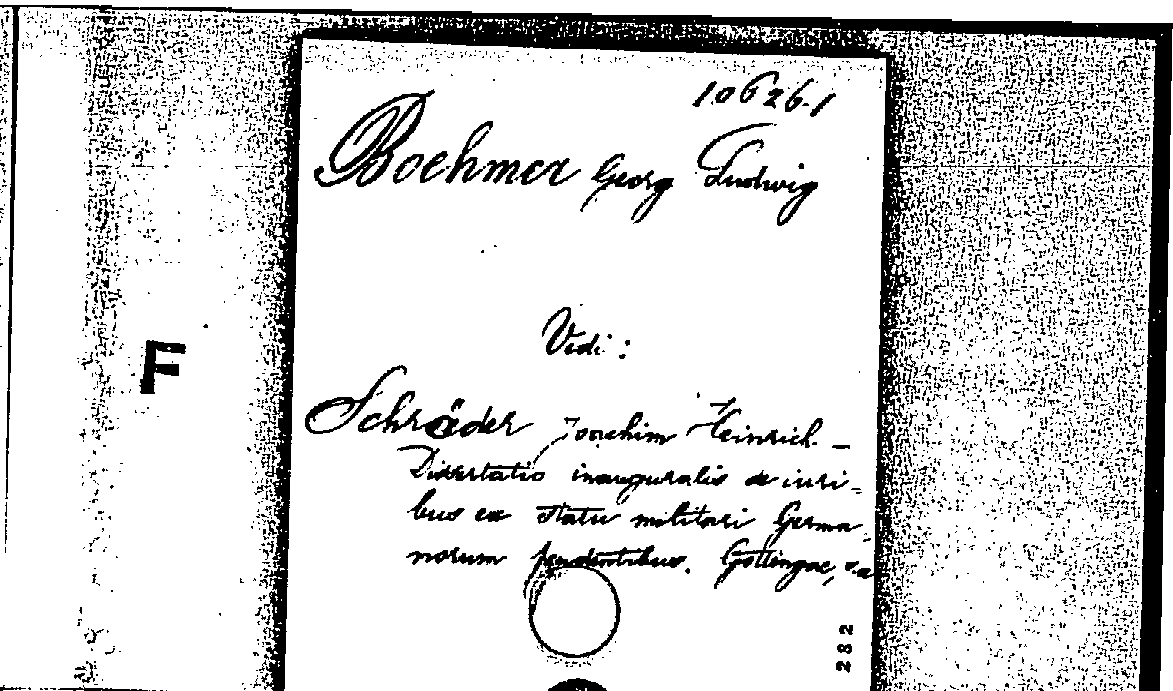 10626.1
Boehmer Georg Ludwig
Vidi:
F
Schröder Joachim Heinrich –
Dissertatio inauguralis de iuri-
bus ex statu militari Germa-
norum pendentibus. Gottingae, s.a
282